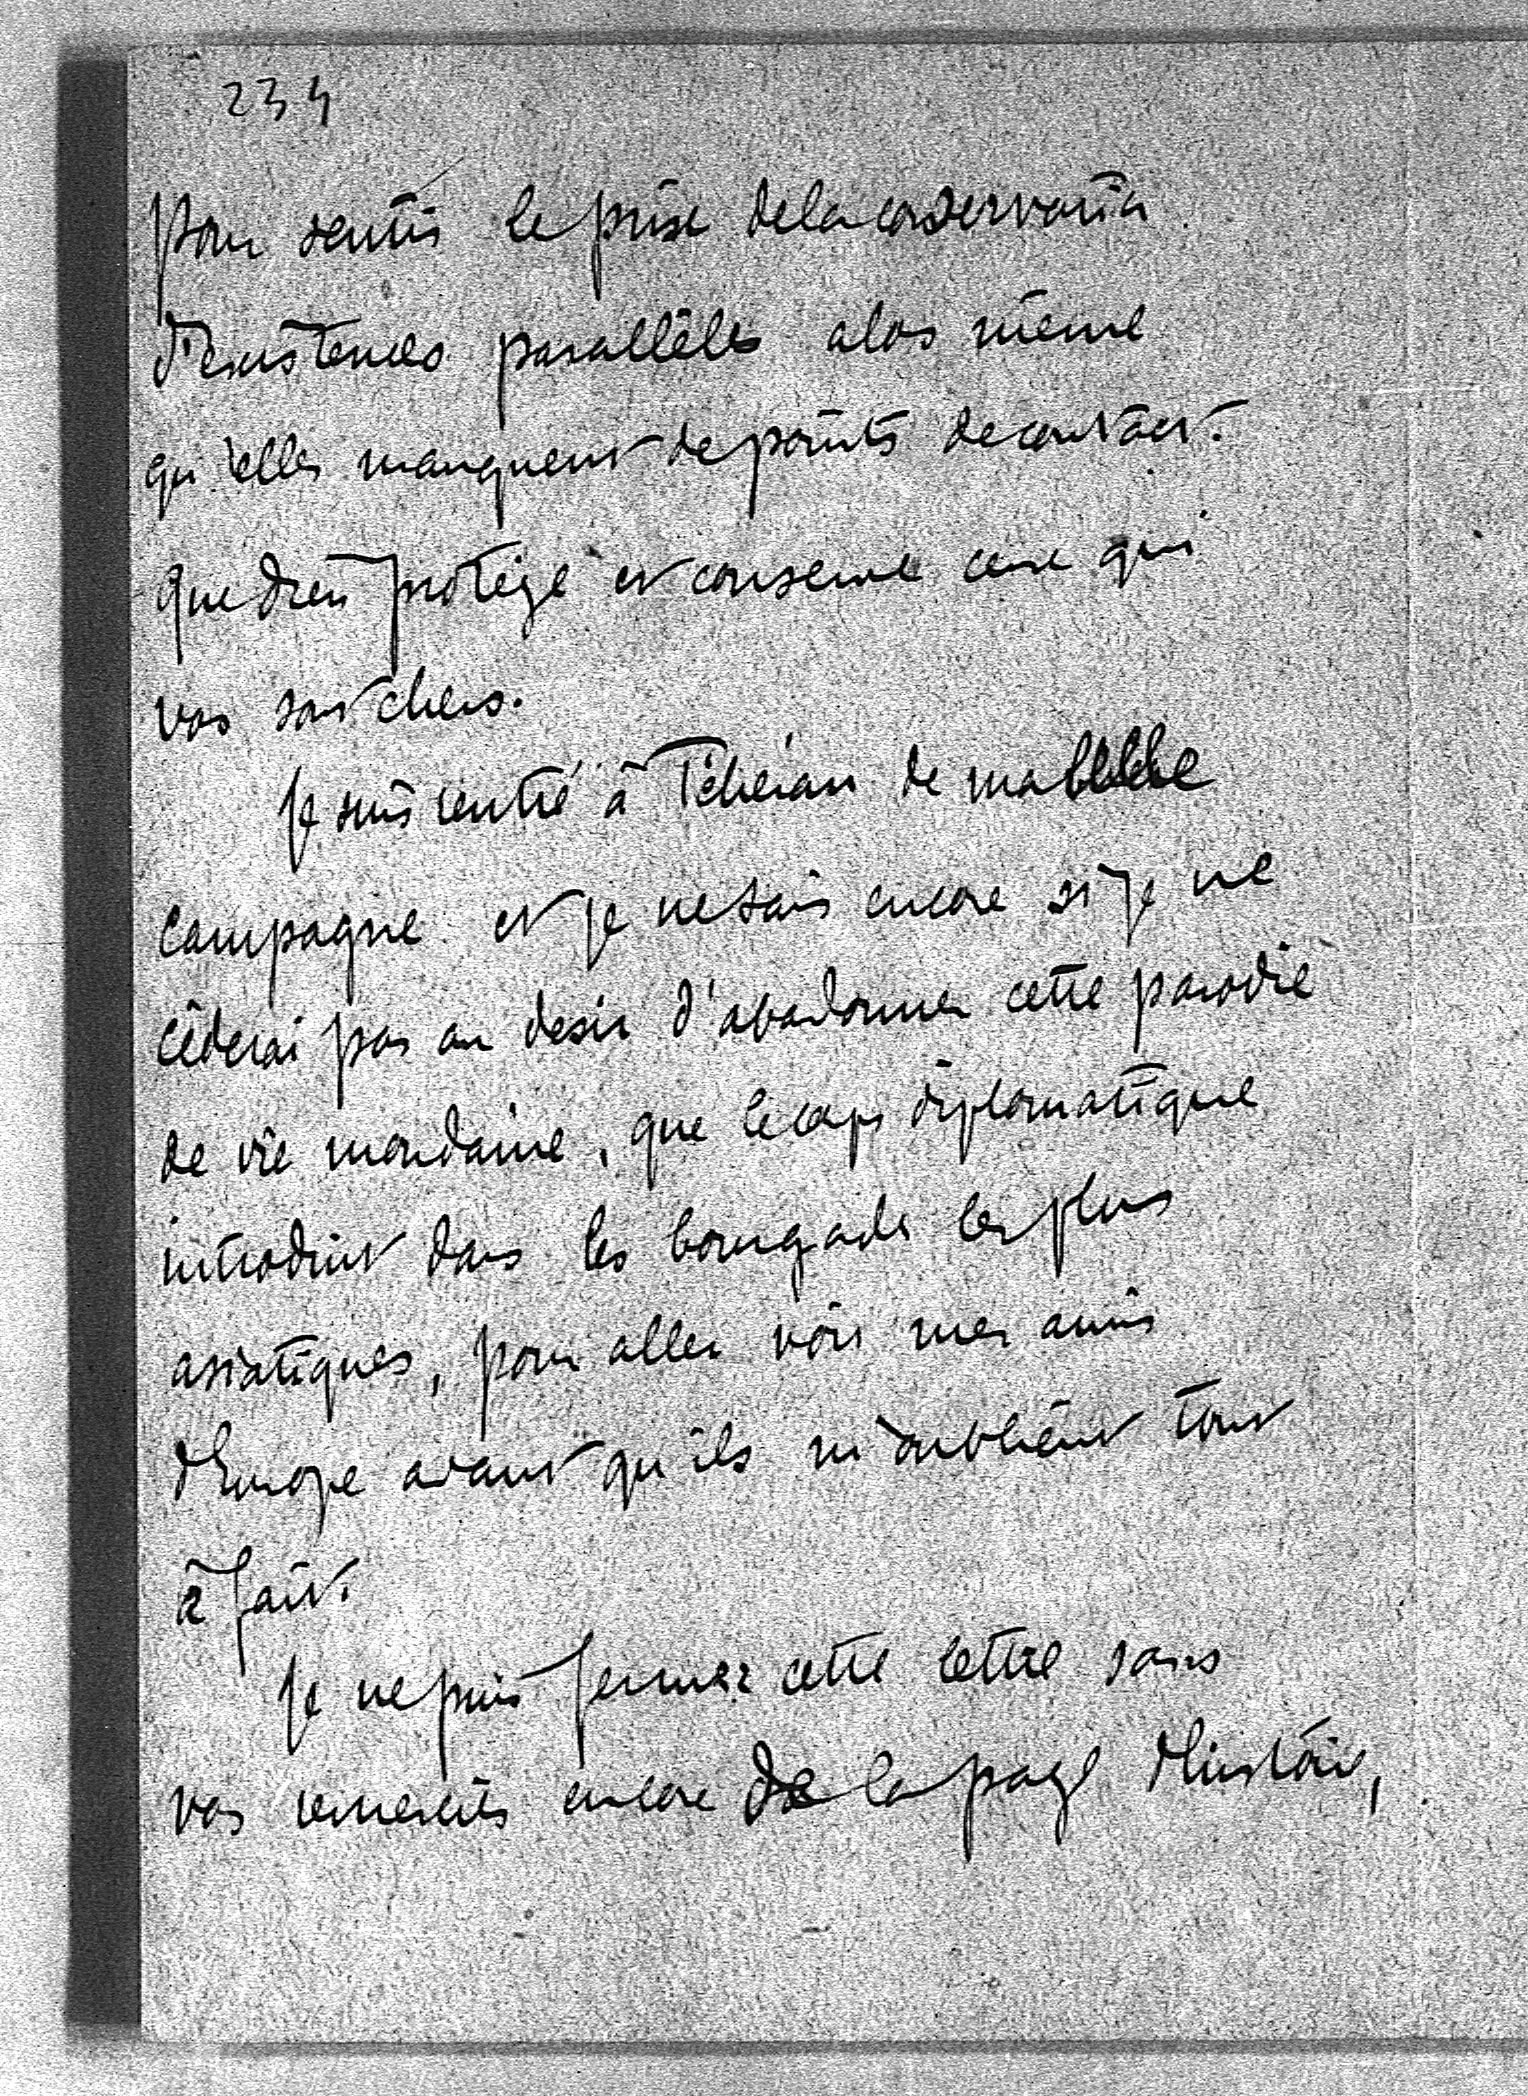 234
pour sentir le prix de la conservation
d'existences parallèles alors même
qu'elles manquent de points de contact.
que dieu protège et conserve ceux qui
vous sont chers.
Je suis rentré à Téhéran de ma belle
campagne et je ne sais encore si je ne
cèderai pas au desir d'abandonner cette parodie
de vie mondaine, que le corps diplomatique
introduit dans les bourgades les plus
asiatiques, pour aller voir mes amis
d'Europe avant qu'ils m'oublient tout
à fait.
Je ne puis fermer cette lettre sans
vous remercier encore de la page d'histoire,